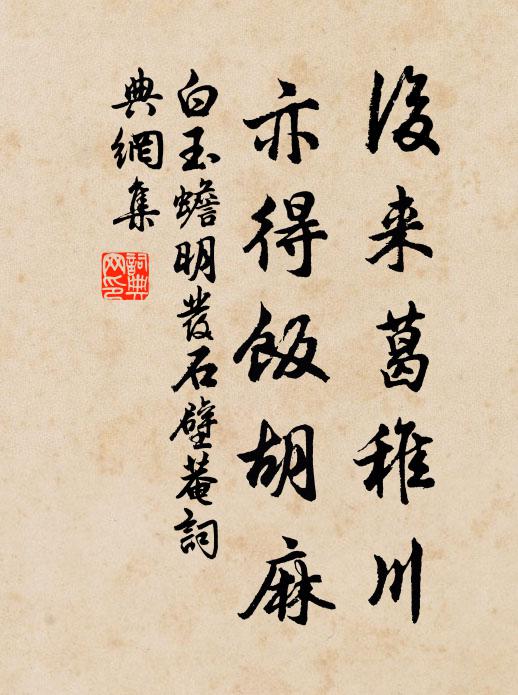 後来葛稚川
亦得飯胡麻
白玉蟾明發石壁菴詞
典網集
詞典網印